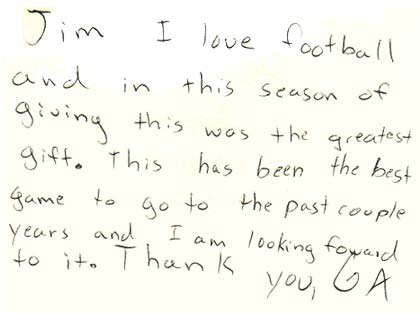 Jim I love football
and in this season of
giving this was the greatest
gift. This has been the best
game to go to the past couple
years and I am looking foward
to it. Thank
you, GA